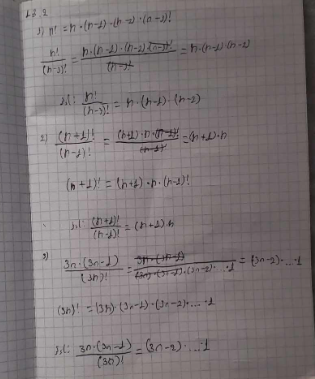 1) n! = n·(n-1)·(n-2)·(n-3)!
n!/(n-3)! = n·(n-1)·(n-2)·(n-3)!/(n-3)! = n·(n-1)·(n-2)
n!/(n-3)! = n·(n-1)·(n-2)
2) (n+1)!/(n-1)! = (n+1)·n·(n-1)!/(n-1)! = (n+1)·n
(n+1)! = (n+1)·n·(n-1)!
(n+1)!/(n-1)! = (n+1)·n
3) 3n·(3n-1)/(3n)! = 3n·(3n-1)/(3n)·(3n-1)·(3n-2)·...·1 = (3n-2)·...·1
(3n)! = (3n)·(3n-1)·(3n-2)·...·1
3n·(3n-1)/(3n)! = (3n-2)·...·1